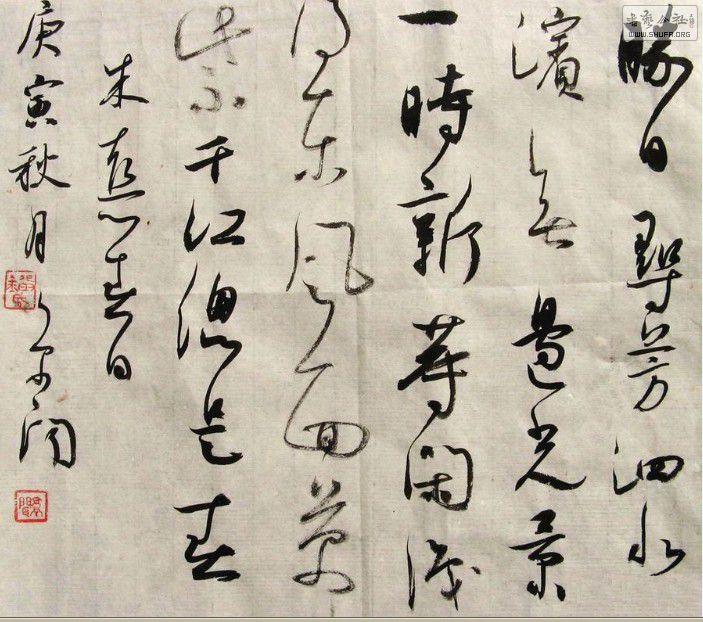 書藝公社
WWW.SHUFA.ORG
勝日尋芳泗水
濱無邊光景
一時新等閑識
得東風面萬
紫千紅總是春
朱熹春日
庚寅秋月